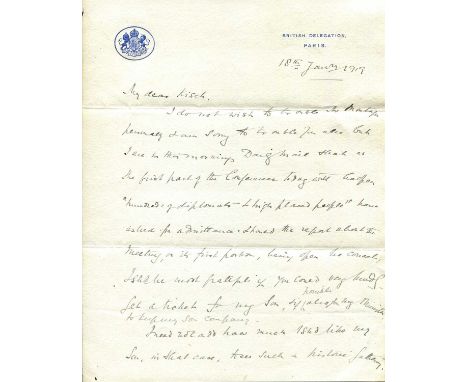 BRITISH DELEGATION,
PARIS.
18th Jany 1919
My dear Kisch.
I do not wish to trouble Mr Montagu
personally & am sorry to trouble you also but
I see in this morning's Daily Mail that as
the first part of the Conference today will
"hundreds of diplomats & high placed people" have
asked for admittance. Should the report about the
Meeting, or its first portion, being open be correct,
I shd be most grateful if you could very kindly
get a ticket for my Son, & if possible also for my
to keep my son company.
I need not add how much I shd like my
Son, in that case, to see such a historic gathering.